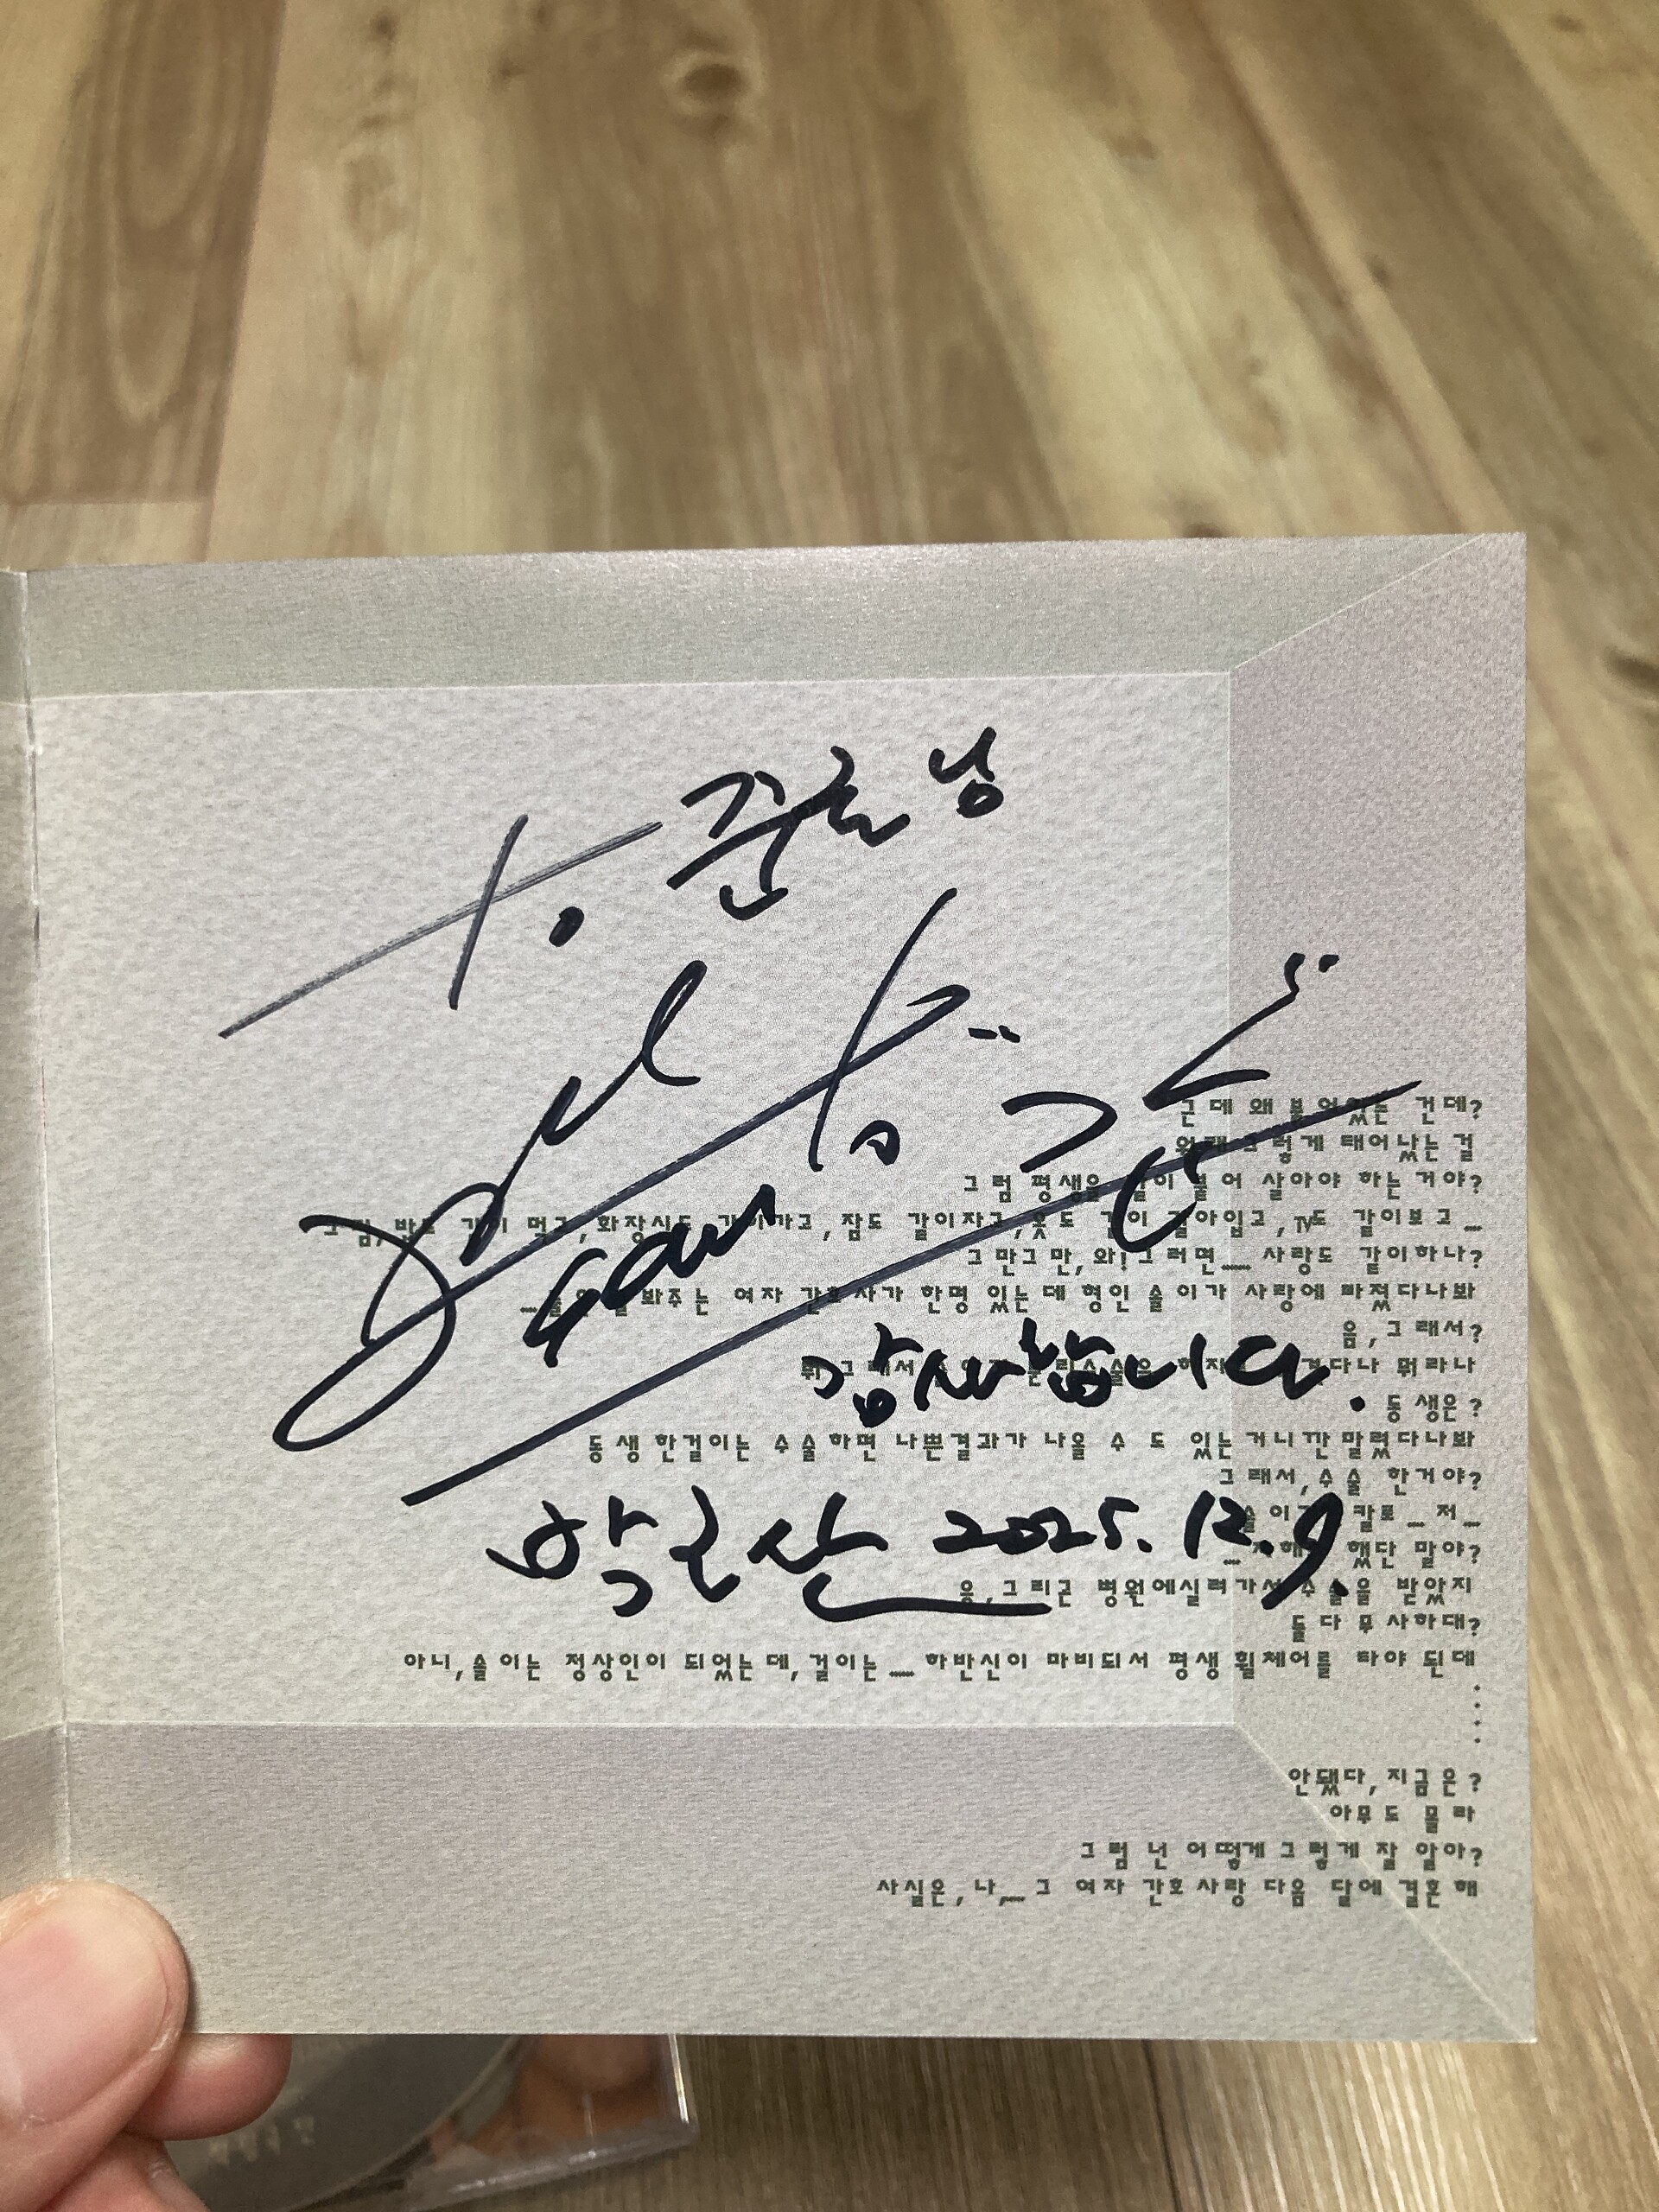 To. 준호 님
감사합니다.
박근산 2025. 12. 9.
근데 왜 붙어있는 건데?
원래 그렇게 태어났는걸
그럼 평생을 같이 붙어 살아야 하는거야?
그럼, 밥도 같이 먹고, 화장실도 같이가고, 잠도 같이자고, 옷도 같이 갈아입고, TV도 같이보고_
그만그만, 와! 그러면__ 사랑도 같이하나?
돌봐주는 여자 간호사가 한명 있는데 형인 술이가 사랑에 빠졌다나봐
음, 그래서?
뭐 그래서 분리수술을 다나 뭐라나
동생은?
동생 한걸이는 수술하면 나쁜결과가 나올 수 도 있는거니깐 말렸다나봐
그래서, 수술 한거야?
술이 칼로 _ 저_
_ 자해 했단 말야?
응, 그리곤 병원에실려가서 수술을 받았지
둘다 무사하대?
아니, 술이는 정상인이 되었는데, 걸이는__ 하반신이 마비되서 평생 휠체어를 타야 된데
....
안됐다, 지금은?
아무도 몰라
그럼 넌 어떻게 그렇게 잘 알아?
사실은, 나__ 그 여자 간호사랑 다음 달에 결혼해